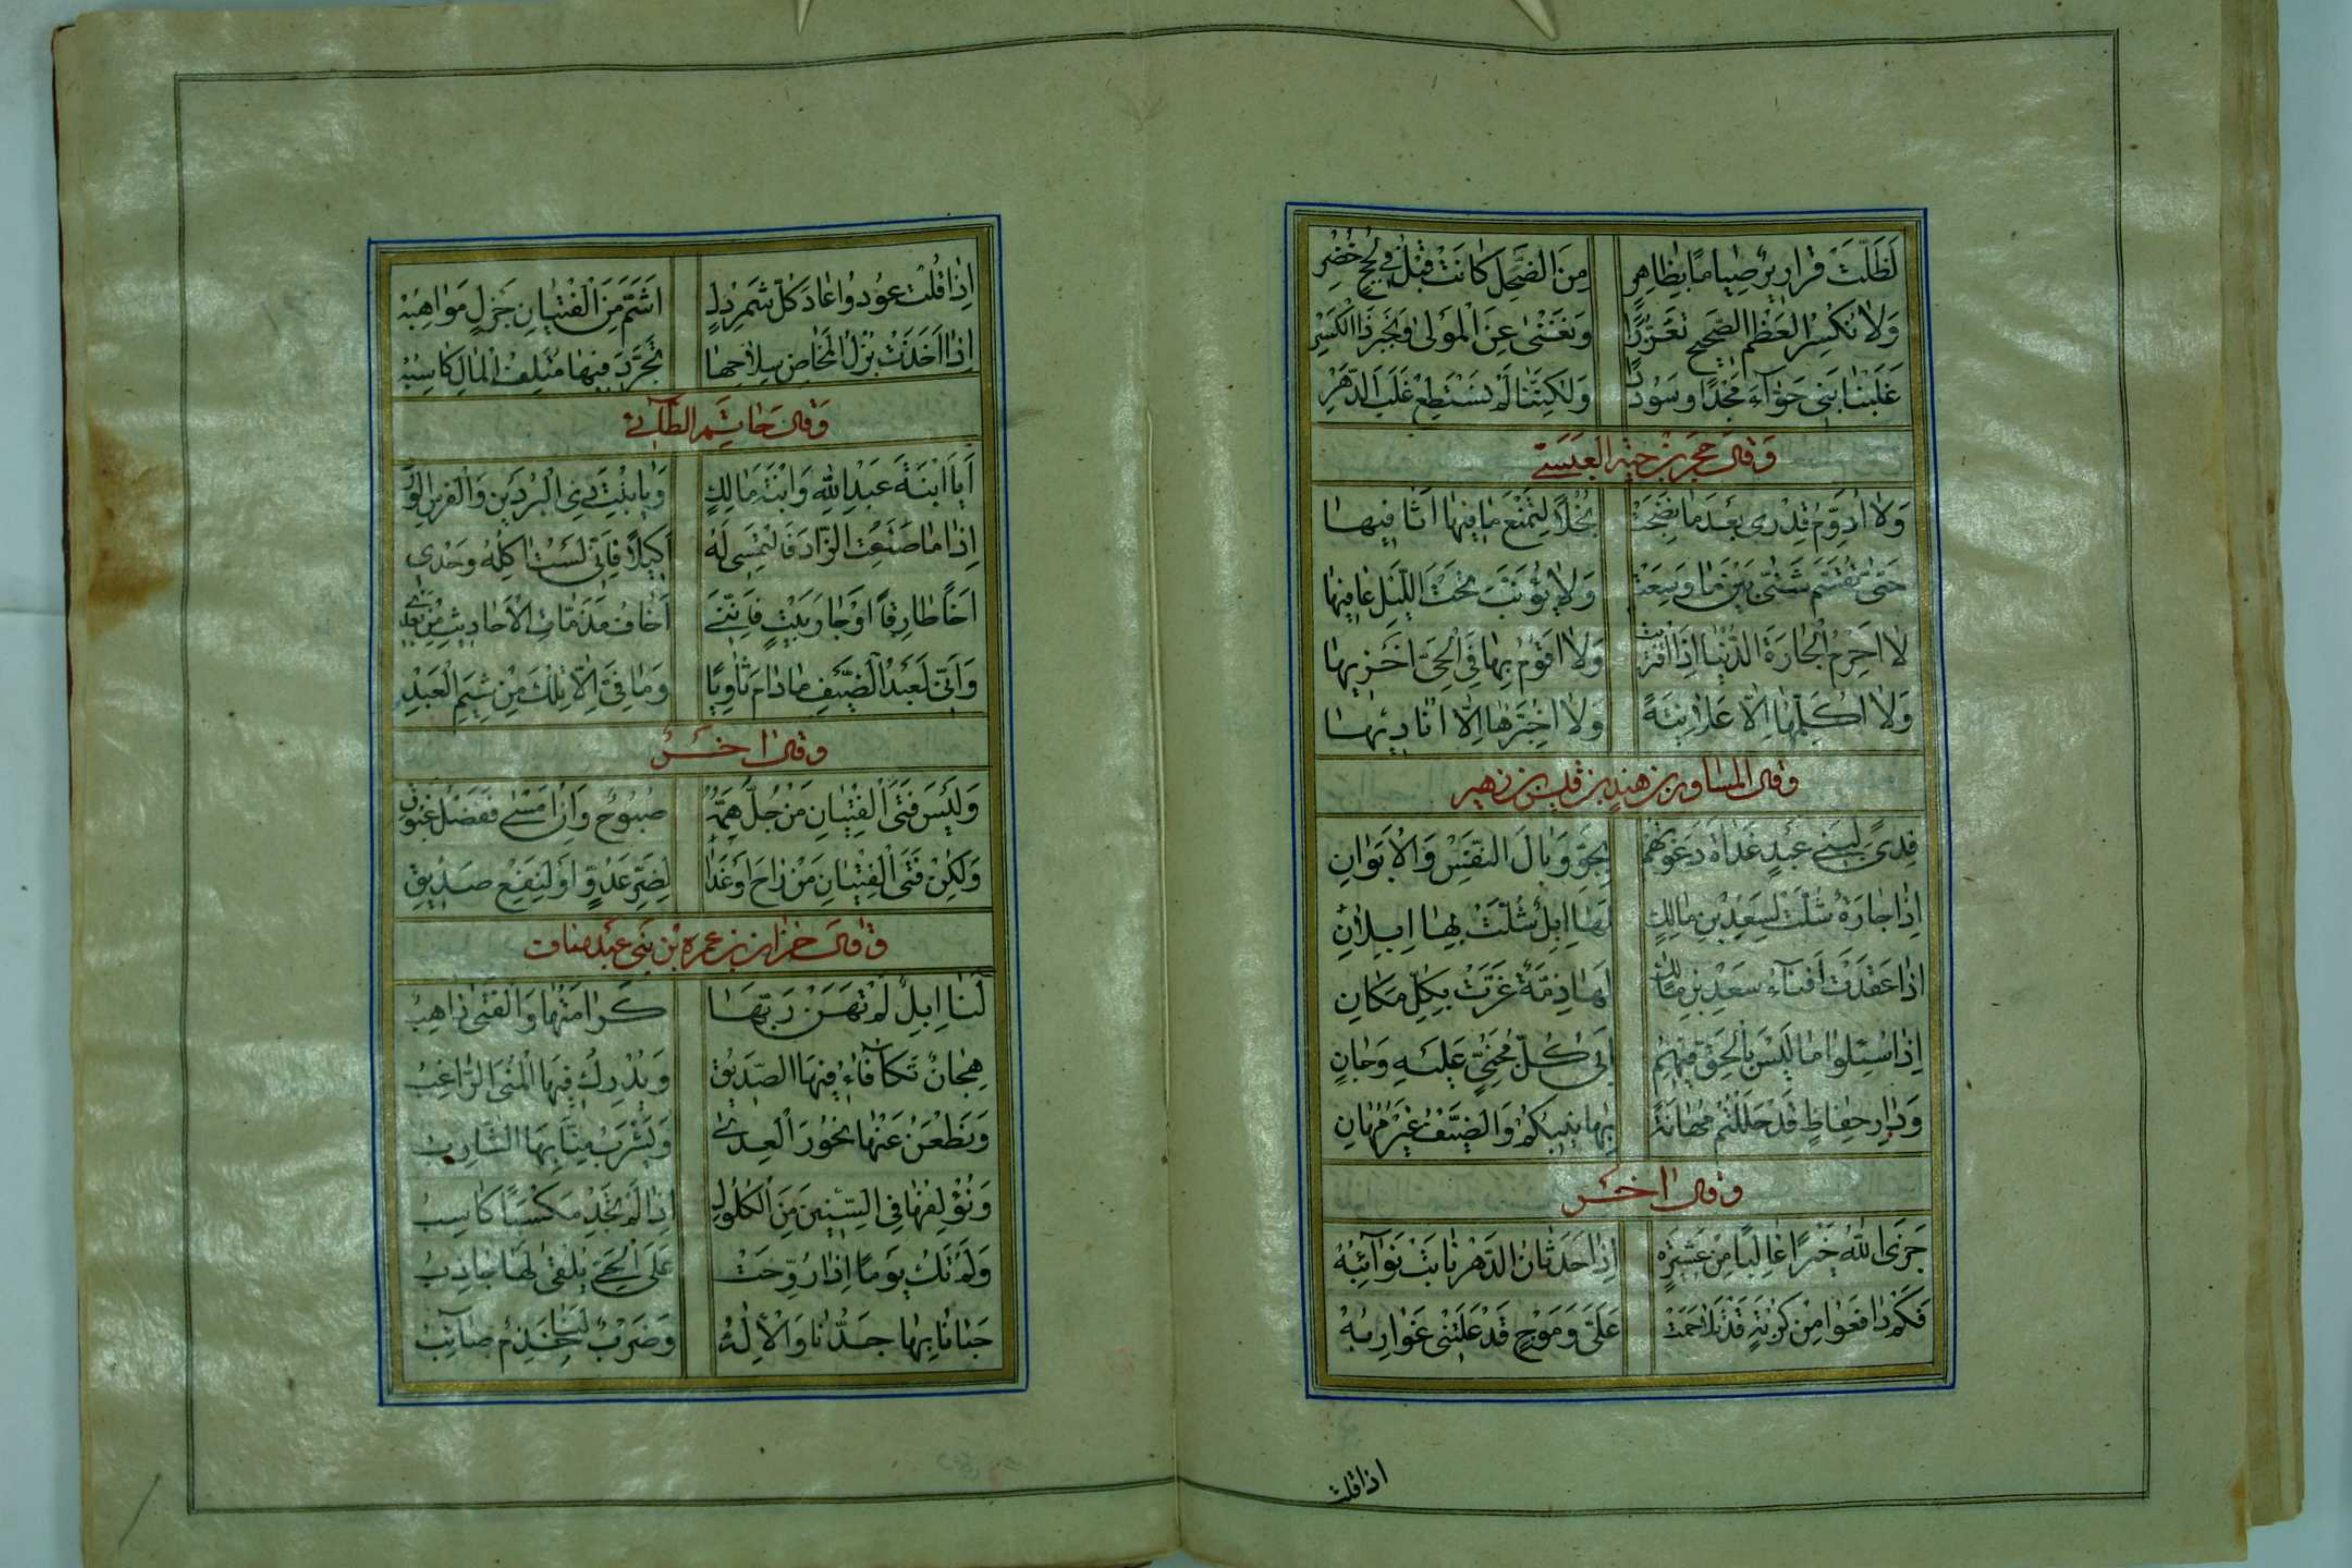 لَظَلَّتْ قراريرٌ صِيامًا بِظاهِرٍ مِنَ الضَّحْلِ كانَتْ قَبْلُ في لُجَجٍ خُضْرِ
وَلا نَكْسِرُ العَظْمَ الصَّحيحَ تَعَزُّزًا وَنَغْنى عَنِ الْمَوْلى وَنَجْبُرُ ذَا الكَسْرِ
غَلَبْنا بَني حَوّآءَ مَجْدًا وَسُودَدًا وَلكِنَّنا لَمْ نَسْتَطِعْ غَلَبَ الدَّهْرِ
وَقالَ حجر بن حيّة العبسي
وَلا اُدَوِّمُ قِدْري بَعْدَما نَضِجَتْ بُخْلًا لِتَمْنَعَ ما فيها اَثافيها
حَتّى تُقَسَّمَ شَتّى بَيْنَ ما وَسِعَتْ وَلا يُؤَنَّبُ تَحْتَ اللَّيْلِ عافيها
لا اَحْرِمُ الْجارَةَ الدُّنْيا اِذَا اقْتَرَبَتْ وَلا اَقُومُ بِها فِي الْحَيِّ اَخْزيها
وَلا اُكَلِّمُها اِلّا عَلانِيَةً وَلا اُخَبِّرُها اِلّا اُناديها
وقال المساور بن هند بن قيس بن زهير
فِدًى لِبَني عَبْدٍ غَداةَ دَعَوْتُهُمْ بِجَوِّ وَبالَ النَّفْسُ وَالْاَبَوانِ
اِذا جارَةٌ شُلَّتْ لِسَعْدِ بْنِ مالِكٍ لَها اِبِلٌ شُلَّتْ بِها اِبِلانِ
اِذا عَقَدَتْ اَفْنآءُ سَعْدِ بْنِ مالِكٍ لَها ذِمَّةً عَزَّتْ بِكُلِّ مَكانِ
اِذا سُئِلُوا ما لَيْسَ بِالحَقِّ فيهِمُ اَبى كُلُّ مَجْنِيٍّ عَلَيْهِ وَجانِ
وَدارِ حِفاظٍ قَدْ حَلَلْتُمْ مُهانَةً بِها نيبُكُمْ وَالضَّيْفُ غَيْرُ مُهانِ
وقال اخر
جَزَى اللّهُ خَيْرًا غالِبًا مِنْ عَشيرَةٍ اِذا حَدَثانُ الدَّهْرِ نابَتْ نَوآئِبُهْ
فَكَمْ دافَعُوا مِنْ كُرْبَةٍ قَدْ تَلاحَمَتْ عَلَيَّ وَمَوْجٍ قَدْ عَلَتْني غَوارِبُهْ
اذا قلت
اِذا قُلْتَ عُودُوا عادَ كُلُّ شَمَرْدَلٍ اَشَمُّ مِنَ الْفِتْيانِ جَزْلٍ مَواهِبُهْ
اِذا اَخَذَتْ بُزْلُ الْمَخاضِ سِلاحَها تَجَرَّدَ فيها مُتْلِفُ الْمالِ كاسِبُهْ
وَقال حاتم الطآئي
اَيَا ابْنَةَ عَبْدِ اللّهِ وَابْنَةَ مالِكٍ وَيا بِنْتَ ذِي الْبُرْدَيْنِ وَالْفَرَسِ الوَرْدِ
اِذا ما صَنَعْتِ الزّادَ فَالْتَمِسي لَهُ اَكيلًا فَاِنّي لَسْتُ اكِلُهُ وَحْدي
اَخًا طارِقًا اَوْ جارَ بَيْتٍ فَاِنَّني اَخافُ مَذَمّاتِ الْاَحاديثِ مِنْ بَعْدي
وَاِنّي لَعَبْدُ الضَّيْفِ ما دامَ ثاوِيًا وَما فِيَّ اِلّا تِلْكَ مِنْ شِيَمِ الْعَبْدِ
وقال اخر
وَلَيْسَ فَتَى الْفِتْيانِ مَنْ جُلُّ هَمِّهِ صَبُوحٌ وَاِنْ اَمْسى فَفَضْلُ غَبُوقِ
وَلكِنْ فَتَى الْفِتْيانِ مَنْ راحَ اَوْ غَدا لِضَرِّ عَدُوٍّ اَوْ لِنَفْعِ صَديقِ
وقال حزاز بن عمرو من بني عبد مناف
لَنا اِبِلٌ لَمْ تُهِنْ رَبَّها كَرامَتُها وَالْفَتى ذاهِبُ
هِجانٌ تَكافَأُ فيهَا الصَّديقُ وَيُدْرِكُ فيهَا الْمُنَى الرّاغِبُ
وَنَطْعَنُ عَنْها نُحُورَ الْعِدى وَيَشْرَبُ مِنّا بِهَا الشّارِبُ
وَنُؤْلِفُها فِي السِّنينَ الْكَلُولَ اِذا لَمْ يَجِدْ مَكْسَبًا كاسِبُ
وَلَمْ تَكُ يَوْمًا اِذا رُوِّحَتْ عَلَى الْحَيِّ يُلْفى لَها جادِبُ
حَبانا بِها جَدُّنا وَالْاِلهُ وَضَرْبٌ لَنا خَذِمٌ صآئِبُ